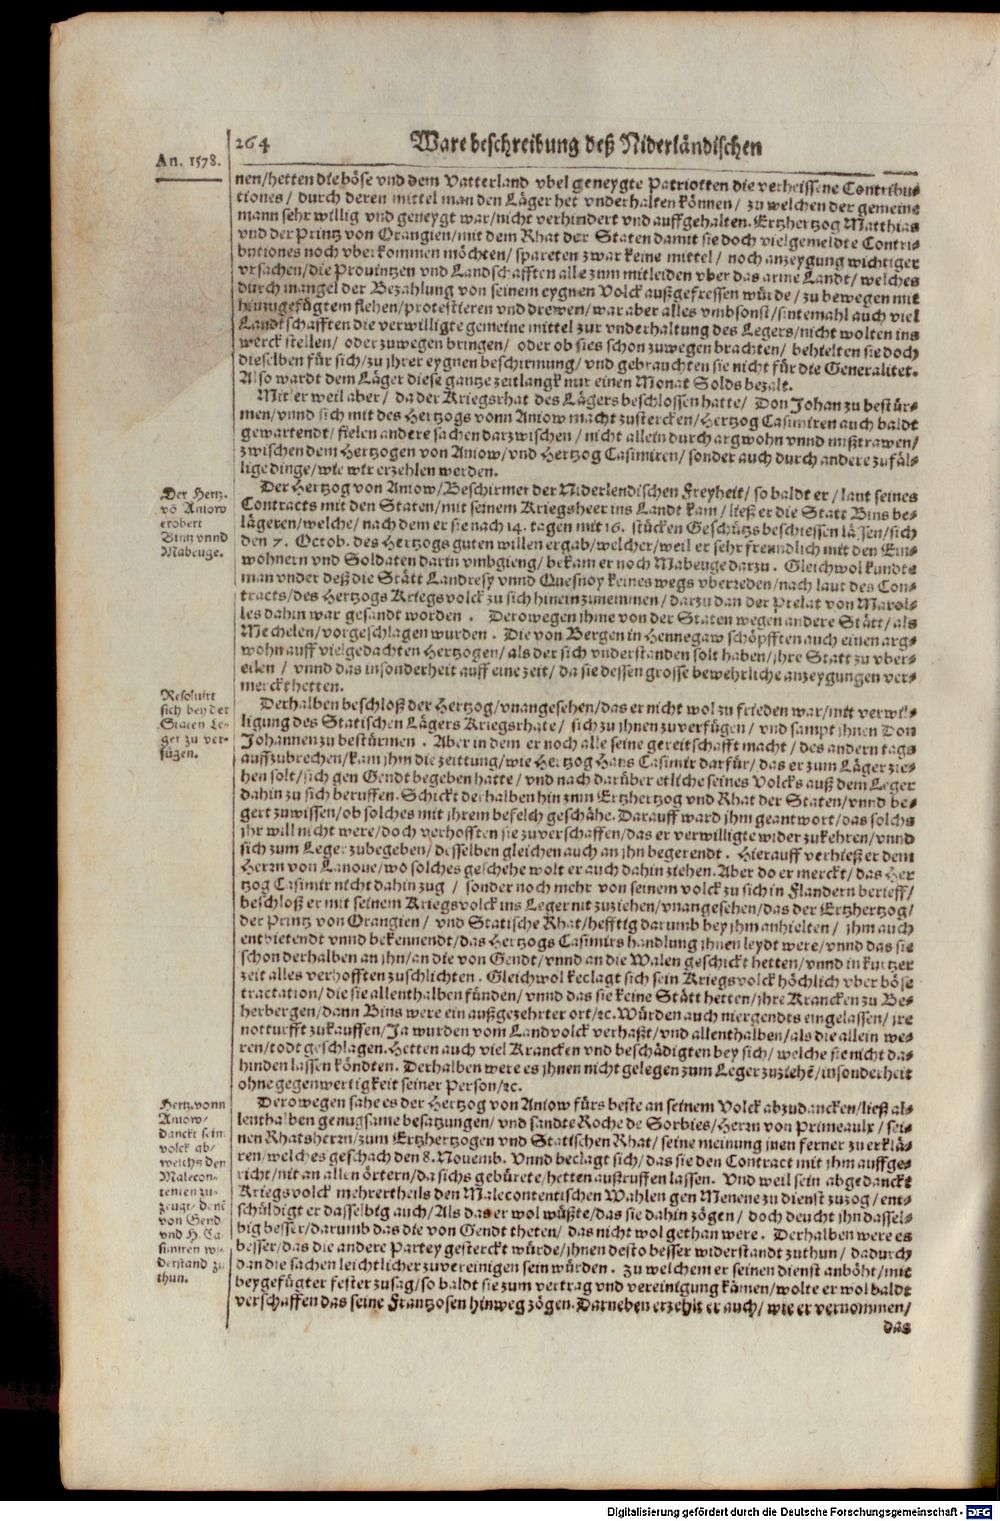 264 Ware beschreibung deß Niderländischen
An. 1578.
nen/hetten die böse vnd dem Vatterland vbel geneygte Patriotten die verheissene Contribu-
tiones/ durch deren mittel man den Läger het vnderhalten können/ zu welchen der gemeine
mann sehr willig vnd geneygt war/nicht verhindert vnd auffgehalten. Ertzhertzog Matthias
vnd der Printz von Orangien/mit dem Rhat der Staten damit sie doch vielgemeldte Contri-
butiones noch vberkommen möchten/ spareten zwar keine mittel/ noch anzeygung wichtiger
vrsachen/die Prouintzen vnd Landschafften alle zum mitleiden vber das arme Landt/ welches
durch mangel der Bezahlung von seinem eygnen Volck außgefressen würde/ zu bewegen mit
hinzugefügtem flehen/protestieren vnd drewen/war aber alles vmbsonst/sintemahl auch viel
Landtschafften die verwilligte gemeine mittel zur vnderhaltung des Legers/nicht wolten ins
werck stellen/ oder zuwegen bringen/ oder ob sies schon zuwegen brachten/ behielten sie doch
dieselben für sich/zu jhrer eygnen beschirmung/ vnd gebrauchten sie nicht für die Generalitet.
Also wardt dem Läger diese gantze zeitlangk nur einen Monat Solds bezalt.
Mitler weil aber/ da der Kriegsrhat des Lägers beschlossen hatte/ Don Johan zu bestür-
men/vnnd sich mit des Hertzogs vonn Aniow macht zustercken/Hertzog Casimiren auch baldt
gewartendt/ fielen andere sachen darzwischen/ nicht allein durch argwohn vnnd mißtrawen/
zwischen dem Hertzogen von Aniow/vnd Hertzog Casimiren/ sonder auch durch andere zufäl-
lige dinge/wie wir erzehlen werden.
Der Hertz.
vö Aniow
erobert
Bintz vnnd
Mabeuge.
Der Hertzog von Aniow/Beschirmer der Niderlendischen Freyheit/ so baldt er/ laut seines
Contracts mit den Staten/mit seinem Kriegsheer ins Landt kam/ ließ er die Statt Bins be-
lägeren/welche/ nach dem er sie nach 14. tagen mit 16. stücken Geschütz beschiessen lassen/sich
den 7. Octob. des Hertzogs guten willen ergab/welcher/weil er sehr freundlich mit den Ein-
wohnern vnd Soldaten darin vmbgieng/ bekam er noch Mabeuge darzu. Gleichwol kundte
man vnder deß die Stätt Landresy vnnd Quesnoy keines wegs vberreden/nach laut des Con-
tracts/des Hertzogs Kriegsvolck zu sich hinein zunemmen/ darzu dan der Prelat von Marol-
les dahin war gesandt worden. Derowegen jhme von der Staten wegen andere Stätt/ als
Mechelen/vorgeschlagen wurden. Die von Bergen in Hennegaw schöpfften auch einen arg-
wohn auff vielgedachten Hertzogen/ als der sich vnderstanden solt haben/jhre Statt zu vber-
eilen/ vnnd das insonderheit auff eine zeit/ da sie dessen grosse bewehrliche anzeygungen ver-
merckt hetten.
Resoluirt
sich bey der
Staten Le-
ger zu ver-
fügen.
Derhalben beschloß der Hertzog/vnangesehen/das er nicht wol zu frieden war/mit verwil-
ligung des Statischen Lägers Kriegsrhate/ sich zu jhnen zuverfügen/ vnd sampt jhnen Don
Johannen zu bestürmen. Aber in dem er noch alle seine gereitschafft macht/ des andern tags
auffzubrechen/kam jhm die zeittung/wie Hertzog Hans Casimir darfür/das er zum Läger zie-
hen solt/sich gen Gendt begeben hatte/ vnd nach darüber etliche seines Volcks auß dem Leger
dahin zu sich beruffen. Schickt derhalben hin zum Ertzhertzog vnd Rhat der Staten/vnnd be-
gert zuwissen/ob solches mit jhrem befelch geschähe. Darauff ward jhm geantwort/das solchs
jhr will nicht were/doch verhofften sie zuverschaffen/das er verwilligte wider zukehren/vnnd
sich zum Leger zubegeben/ desselben gleichen auch an jhn begerendt. Hierauff verhieß er dem
Herrn von Lanoue/wo solches geschehe wolt er auch dahin ziehen. Aber do er merckt/das Her
tzog Casimir nicht dahin zug/ sonder noch mehr von seinem volck zu sich in Flandern berieff/
beschloß er mit seinem Kriegsvolck ins Leger nit zuziehen/vnangesehen/das der Ertzhertzog/
der Printz von Orangien/ vnd Statische Rhat/hefftig darumb bey jhm anhielten/ jhm auch
entbietendt vnnd bekennendt/das Hertzogs Casimirs handlung jhnen leydt were/vnnd das sie
schon derhalben an jhn/an die von Gendt/vnnd an die Walen geschickt hetten/vnnd in kurtzer
zeit alles verhofften zuschlichten. Gleichwol beclagt sich sein Kriegsvolck höchlich vber böse
tractation/die sie allenthalben fünden/ vnnd das sie keine Stätt hetten/jhre Krancken zu Be-
herbergen/dann Bins were ein außgezehrter ort/rc. Würden auch niergendts eingelassen/ jre
notturfft zukauffen/Ja wurden vom Landvolck verhaßt/vnd allenthalben/als die allein we-
ren/todt geschlagen. Hetten auch viel Krancken vnd beschädigten bey sich/ welche sie nicht da-
hinden lassen köndten. Derhalben were es jhnen nicht gelegen zum Leger zuziehē/insonderheit
ohne gegenwertigkeit seiner Person/rc.
Hertz. vonn
Aniow/
danckt sein
volck ab/
welchs den
Malecon-
tenten zu-
zeugt/ denē
von Gend
vnd H. Ca-
simiren wi-
derstand zu
thun.
Derowegen sahe es der Hertzog von Aniow fürs beste an seinem Volck abzudancken/ließ al-
lenthalben genugsame besatzungen/ vnd sandte Roche de Sorbies/ Herrn von Primeaulx/ sei-
nen Rhatsherrn/zum Ertzhertzogen vnd Statischen Rhat/ seine meinung jnen ferner zu erklä-
ren/welches geschach den 8. Nouemb. Vnnd beclagt sich/das sie den Contract mit jhm auffge-
richt/nit an allen örtern/da sichs gebürete/hetten außruffen lassen. Vnd weil sein abgedanckt
Kriegsvolck mehrertheils den Malecontentischen Wahlen gen Menene zu dienst zuzog/ ent-
schüldigt er dasselbig auch/Als das er wol wüßte/das sie dahin zögen/ doch deucht jhn dassel-
big besser/darumb das die von Gendt theten/ das nicht wol gethan were. Derhalben were es
besser/das die andere Partey gesterckt würde/jhnen desto besser widerstandt zuthun/ dadurch
dan die sachen leichtlicher zuvereinigen sein würden. Zu welchem er seinen dienst anböht/mit
beygefügter fester zusag/so baldt sie zum vertrag vnd vereinigung kämen/wolte er wol baldt
verschaffen das seine Frantzosen hinweg zögen. Darneben erzehlt er auch/ wie er vernommen/
das
Digitalisierung gefördert durch die Deutsche Forschungsgemeinschaft - DFG